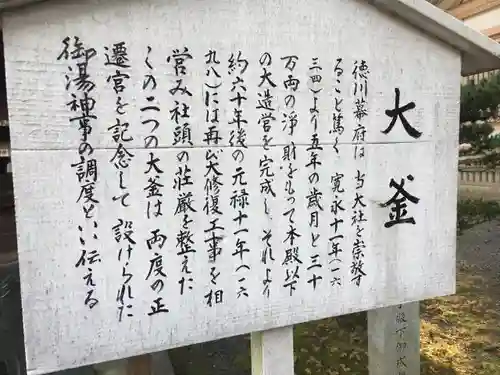 大釜
徳川幕府は 当大社を崇敬す
ること篤く 寛永十一年（一六
三四）より五年の歳月と三十
万両の浄財をもって本殿以下
の大造営を完成し、それより
約六十年後の元禄十一年（一六
九八）には再び大修復工事を相
営み社頭の荘厳を整えた
この二つの大釜は 両度の正
遷宮を記念して 設けられた
御湯神事の調度と、い伝える